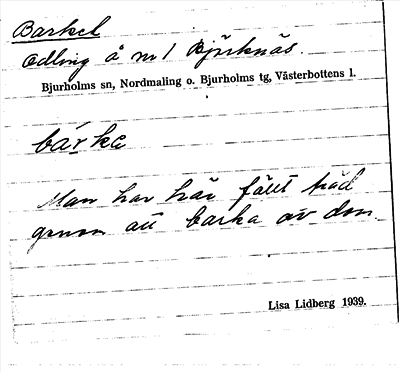 Barkel
Odling å nr 1 Bjurknäs.
Bjurholms sn, Nordmaling o. Bjurholms tg, Västerbottens l.
bárkɑ
Man har här fällt träd
genom att barka av dem.
Lisa Lidberg 1939.